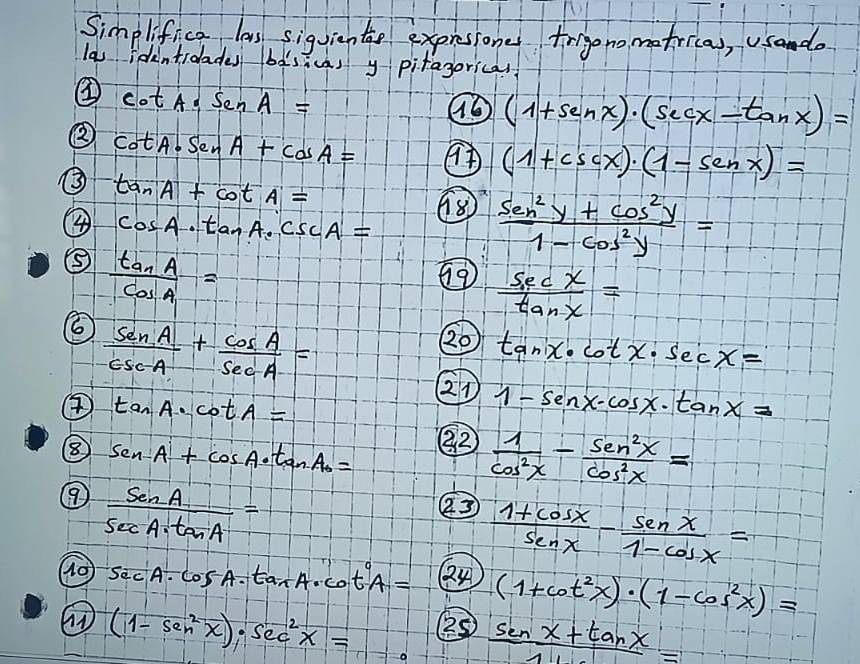 Simplifica las siguientes expresiones trigonometricas, usando
las identidades básicas y pitagoricas.
① cot A · sen A =
② cot A · Sen A + cos A =
③ tan A + cot A =
④ cos A · tan A · csc A =
⑤ tan A / cos A =
⑥ sen A / csc A + cos A / sec A =
⑦ tan A · cot A =
⑧ sen A + cos A · tan A =
⑨ sen A / sec A · tan A =
⑩ sec A · cos A · tan A · cot A =
⑪ (1 - sen²x) · sec²x =
⑯ (1 + sen x) · (sec x - tan x) =
⑰ (1 + csc x) · (1 - sen x) =
⑱ sen²y + cos²y / 1 - cos²y =
⑲ sec x / tan x =
⑳ tan x · cot x · sec x =
㉑ 1 - sen x · cos x · tan x =
㉒ 1 / cos²x - sen²x / cos²x =
㉓ 1 + cos x / sen x - sen x / 1 - cos x =
㉔ (1 + cot²x) · (1 - cos²x) =
㉕ sen x + tan x =